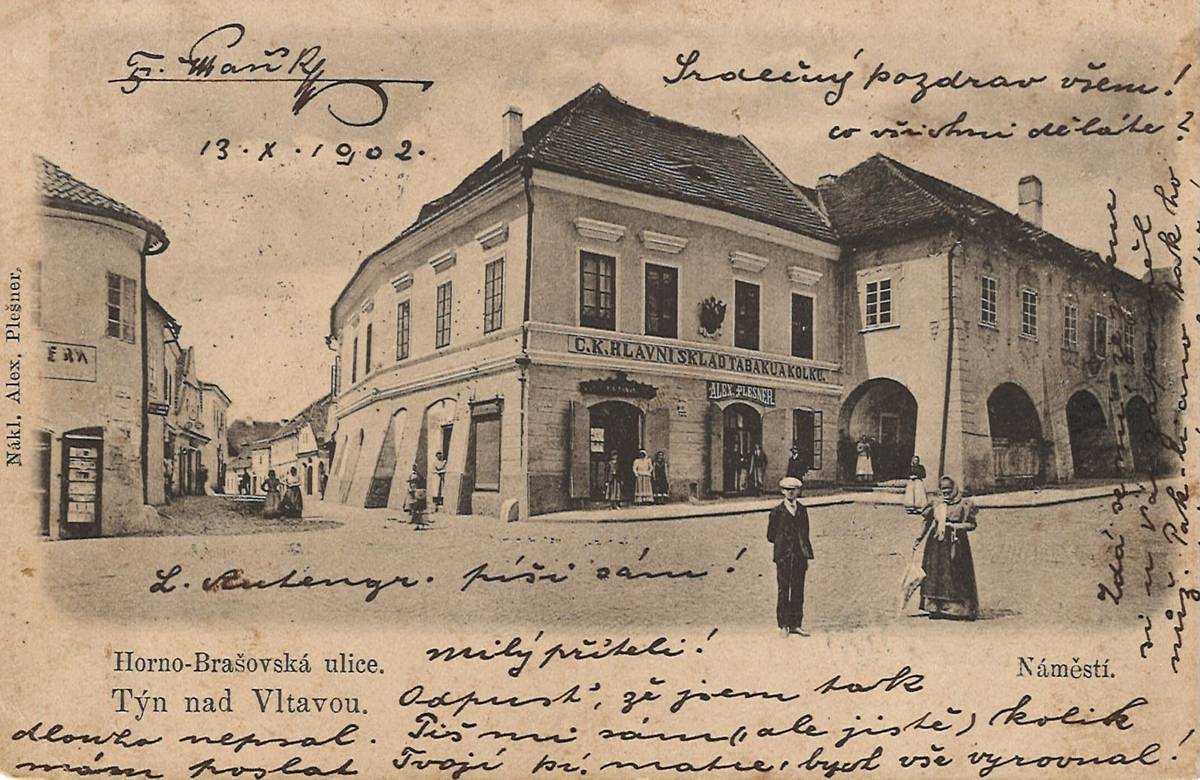 13.X.1902.
Srdečný pozdrav všem!
co všichni děláte?
Nákl. Alex. Plešner,
C.K. HLAVNÍ SKLAD TABÁKU A KOLKŮ.
ALEX. PLESNER.
L. Autengr. píši sám!
Horno-Brašovská ulice.
Týn nad Vltavou.
Náměstí.
milý příteli!
Odpusť, že jsem tak
dlouho nepsal. Piš mi sám, (ale jistě) kolik
mám poslat Tvojí matce, bych vše vyrovnal!
Zdá se mi že jsem
si u Vás
můž. Pak-li ano tak ho